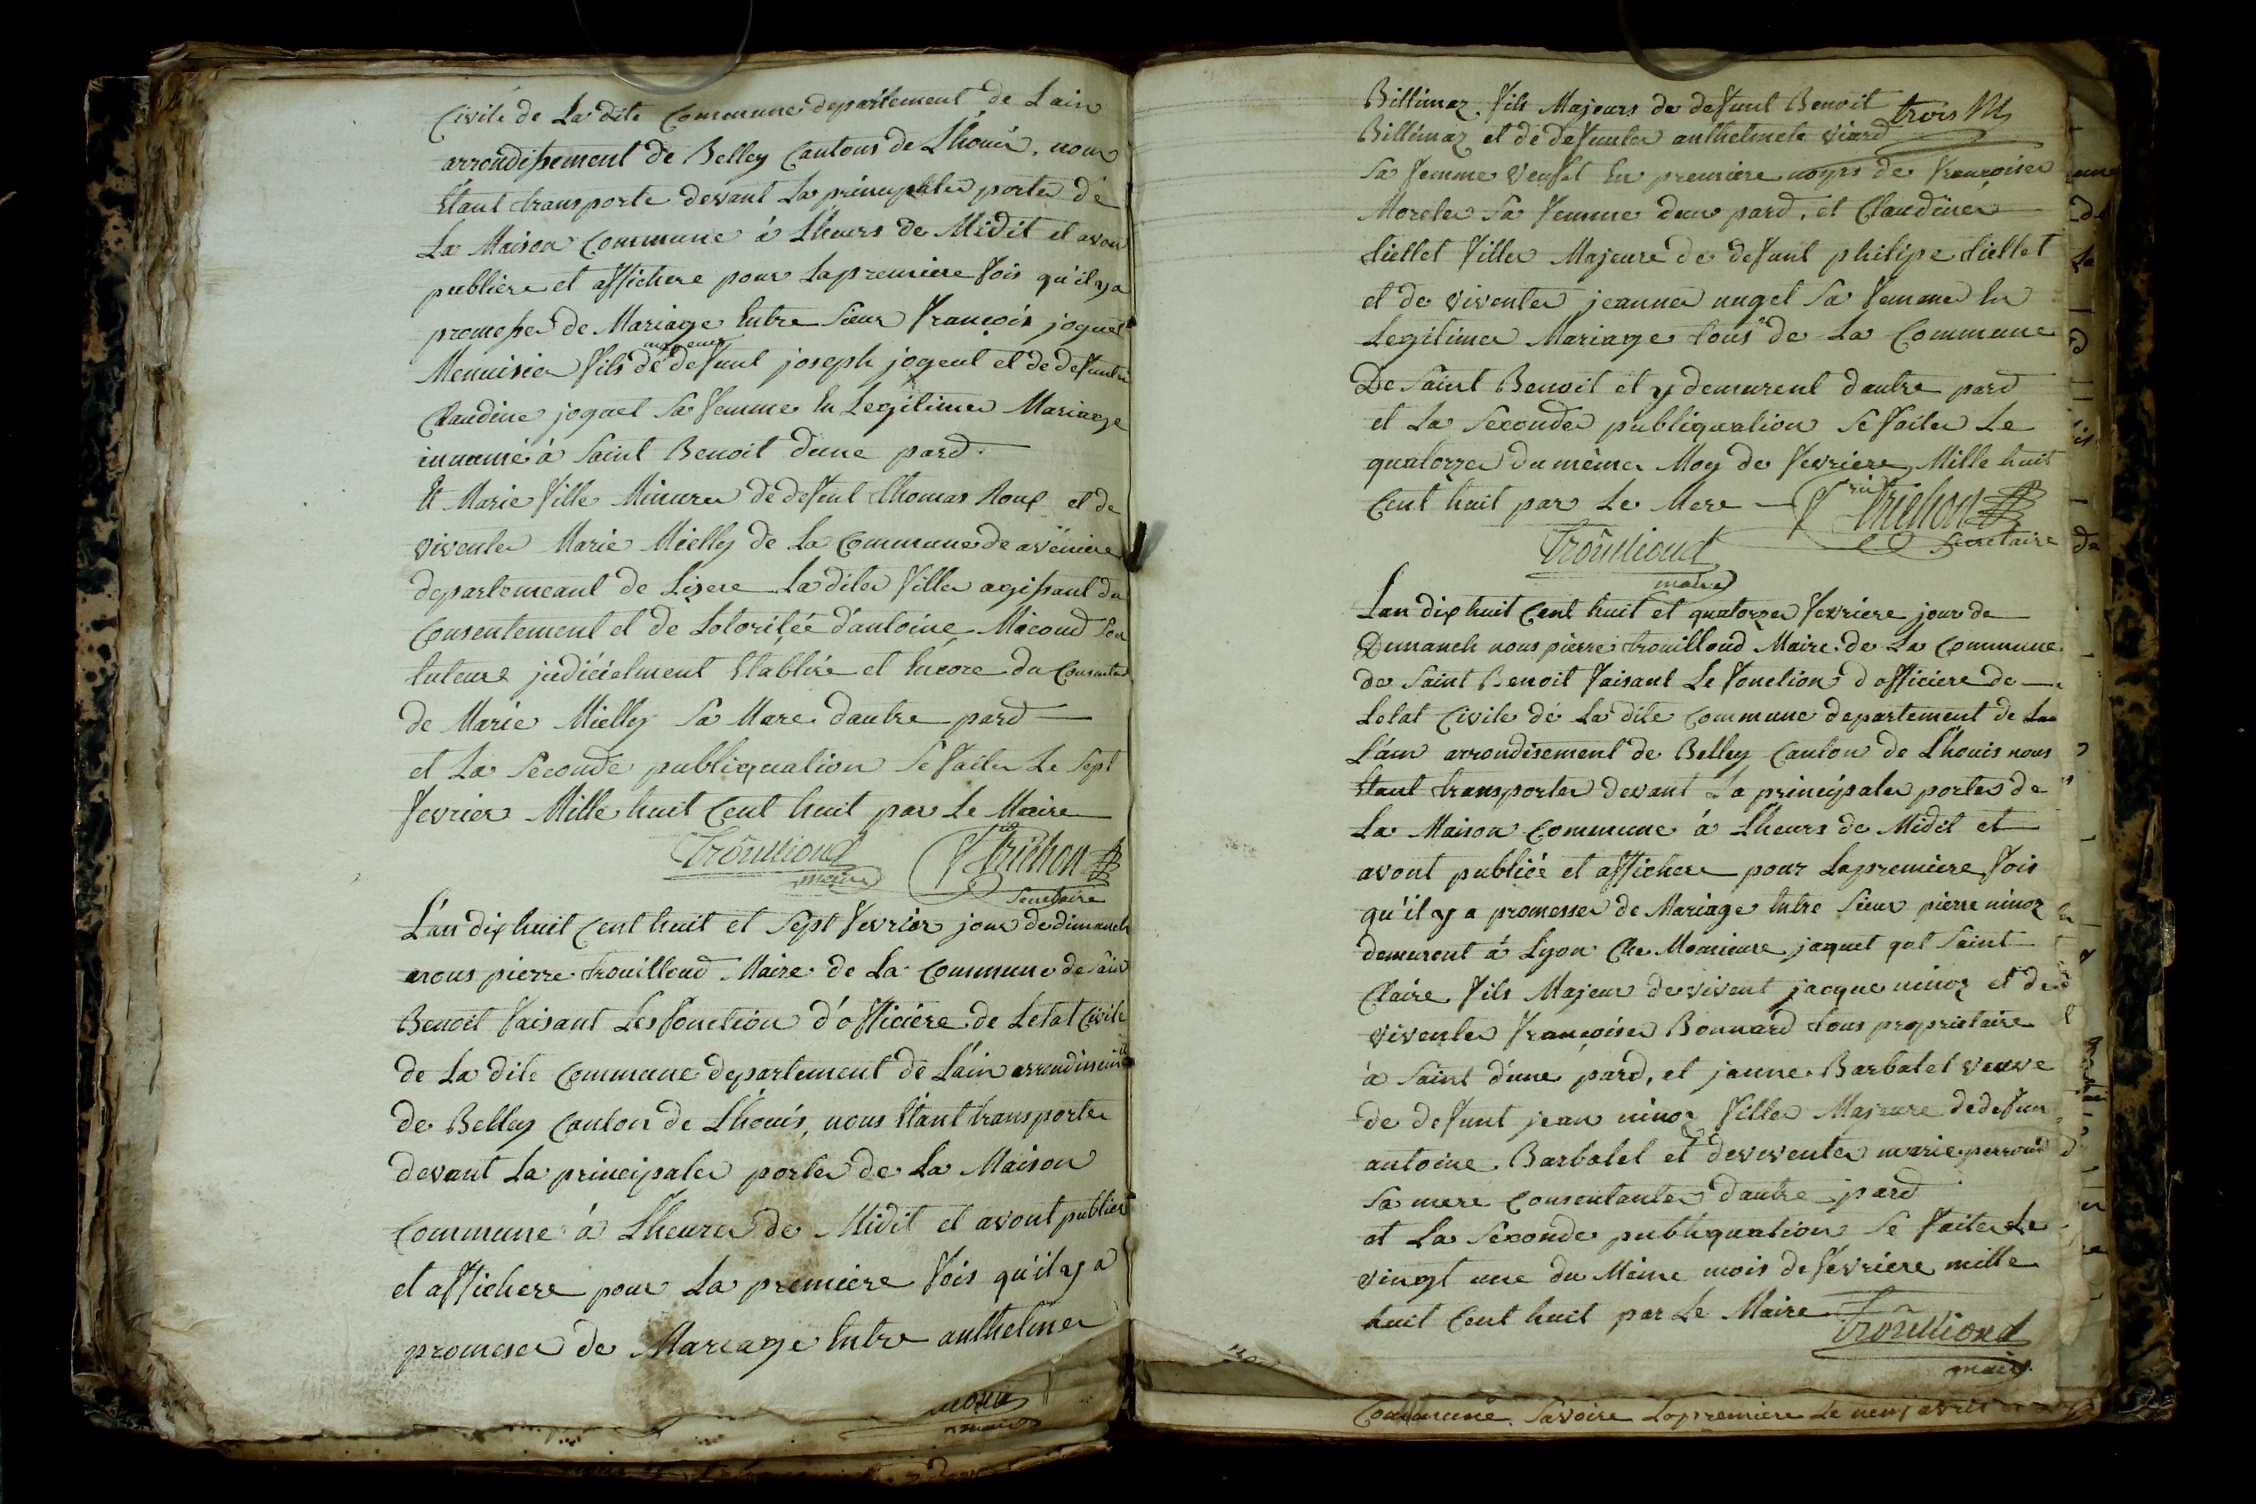 Civile de La dite Commune departement de Lain
arrondissement de Belley Cantons de Lhouis. nous
Etant transporte devant La principale porte de
La Maison Commune á Lheurs de Midit et avon
publiere et affichere pour Lapremiere fois qu'il y a
promesse de Mariage Entre Sieur François joquet
majeur
Menuisier fils de defunt joseph jogent et de defunte
Claudine joquet Sa femme En Legitime Mariage
á Saint Benoit dune pard.
Et Marie fille Mineure de defunt Thomas Roux et de
vivente Marie Mielly de La Commune de avéniere
departemeant de Lisere La dite fille agissant du
Consentement et de Lotoritée d'antoine Micoud Son
tuteure judiciélment Etablire et Encore du Consente
de Marie Mielly Sa Mare dautre pard
et La Seconde publiquation Se faite Le Sept
fevrier Mille huit Cent huit par Le Maire
Troullioud
maire
Trichon
Secretaire
L'an dix huit Cent huit et Sept fevrier jour de dimanch
nous pierre trouilloud Maire de La Commune de Sain
Benoit faisant Les fonction d'officiere de Letat Civile
de La dite Commune departement de L'ain arrondissement
de Belley Canton de Lhouis, nous Etant transporter
devant La principale porte de La Maison
Commune á Lheure de Midit et avont publier
et affichere pour La premiere fois qu'il y a
promese de Mareage Entre anthelme
maire
Billimaz. fils Majeurs de defunt Benoit
trois
Billimaz et de defunte anthelmete viard
Sa femme veufet En premiere noyes de françoise
Morele Sa femme dune pard, et Claudine
tiellet fille Majeure de defunt philipe tiellet
et de vivente jeanne nuget Sa femme En
Legitime Mariage tous de La Commune
De Saint Benoit et y demurent dautre pard
et La Seconde publiquation Se faite Le
quatorze du même Moy de fevriere Mille huit
Cent huit par Le Mere
Trichon
Secretaire
Troullioud
maire
Lan dix huit Cent huit et quatorze fevriere jour de
Dimanch nous pierre trouilloud Maire de La Commune
de Saint Benoit faisant Le fonction d officiere de
Letat Civile de La dite Commune departement de La
L'ain arrondisement de Belley Canton de Lhouis nous
Etant transporter devant La principale porte de
La Maison Commune á Lheurs de Midit et
avont publiée et affichere pour Lapremiere fois
qu'il y a promesse de Mariage Entre Sieur pierre ninoz
demurent á Lyon Che Monsieure jaquet Saint
Claire fils Majeur de vivent jacque ninoz et de
vivente françoise Bonnard tous proprietaire
á Saint d'une pard, et janne Barbalet veuve
de defunt jean ninoz fille Majeure de defun
antoine Barbalet et de vivente marie perroud
Sa mere Consentante dautre pard
et La Seconde publiquation Se faite Le
vingt une du Méme mois de fevriere mille
huit Cent huit par Le Maire
Troullioud
maire
Commune Savoire Lapremiere Le neuf avril